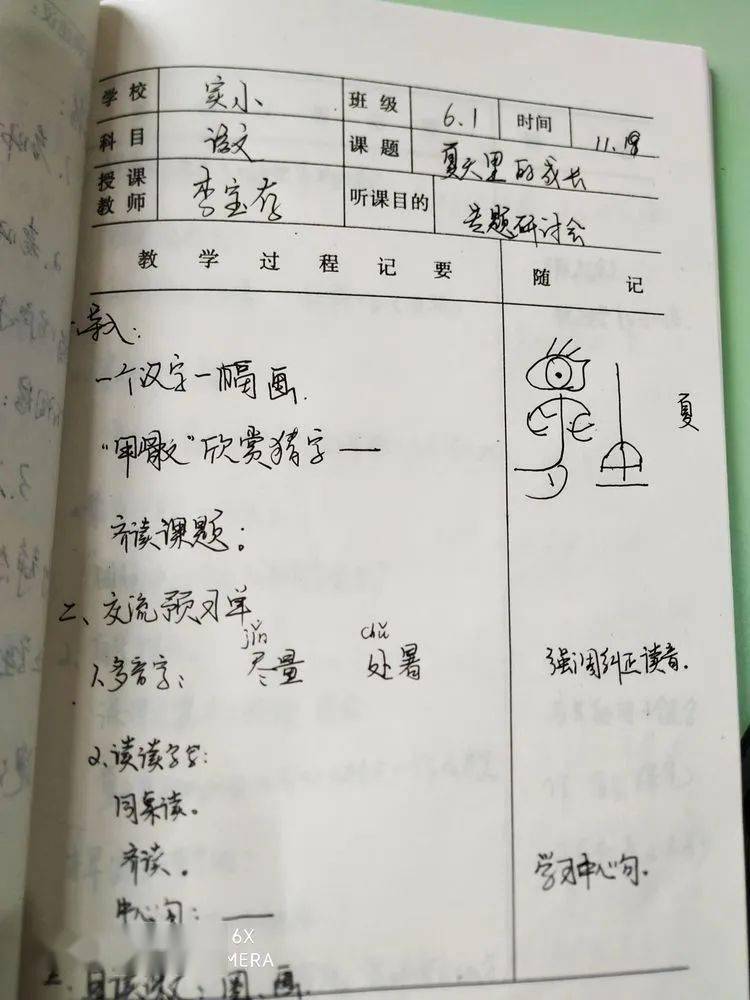 学校 实小 班级 6.1 时间 11.18
科目 语文 课题 夏天里的成长
授课教师 李宝存 听课目的 专题研讨会
教学过程记要 随记
导入：
一个汉字一幅画.
夏
“甲骨文”欣赏猜字—
齐读课题：
二、交流预习单
jǐn chǔ
1.多音字： 尽量 处暑 强调纠正读音.
2.读读写写：
同桌读。
齐读。 学习中心句.
中心句：——
6X
MERA
自读课文：圈、画.